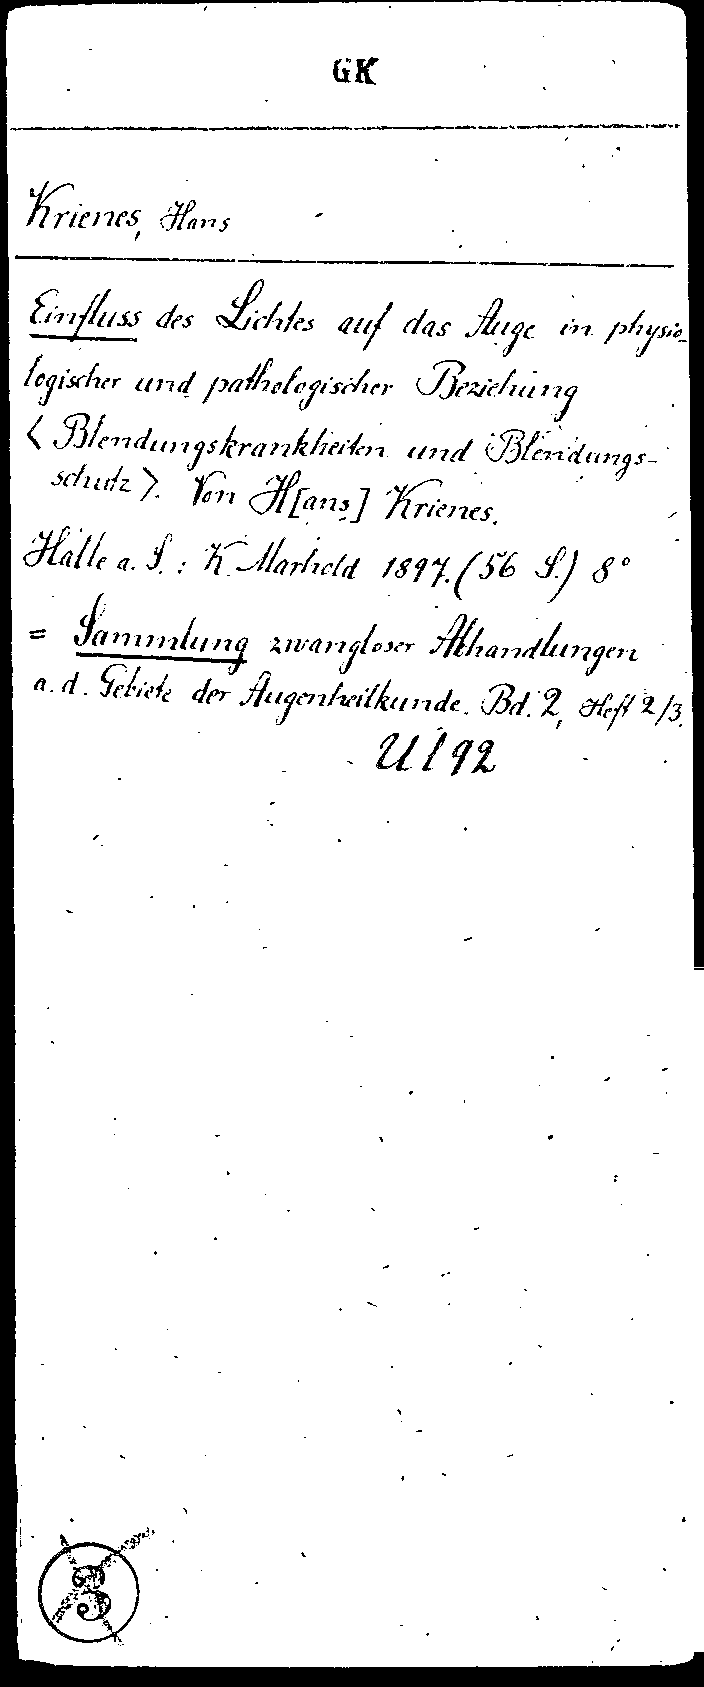 GK
Krienes, Hans
Einfluss des Lichtes auf das Auge in physio-
logischer und pathologischer Beziehung
< Blendungskrankheiten und Blendungs-
schutz >. Von H[ans] Krienes.
Halle a. S. : K. Marhold 1897. (56 S.) 8°
= Sammlung zwangloser Abhandlungen
a. d. Gebiete der Augenheilkunde. Bd. 2, Heft 2/3.
U l 92
3